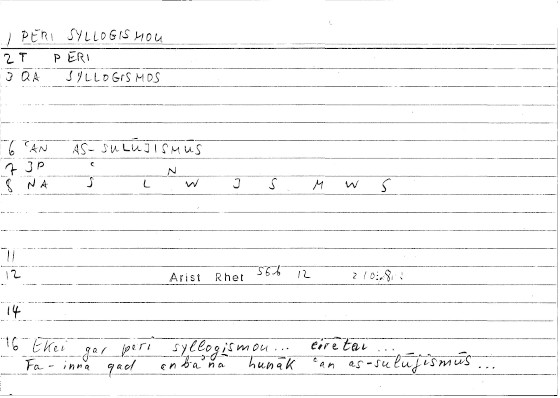 1 PERI SYLLOGISMOU
2 T PERI
3 QA SYLLOGISMOS
6 ʿAN AS-SULŪJISMŪS
7 JP ʿ N
8 NA S L W J S M W S
11
12 Arist Rhet 56b 12
14
16 Ekei gar peri syllogismou... eirētai ...
Fa-inna qad anbaʾnā hunāk ʿan as-sulūjismūs ...